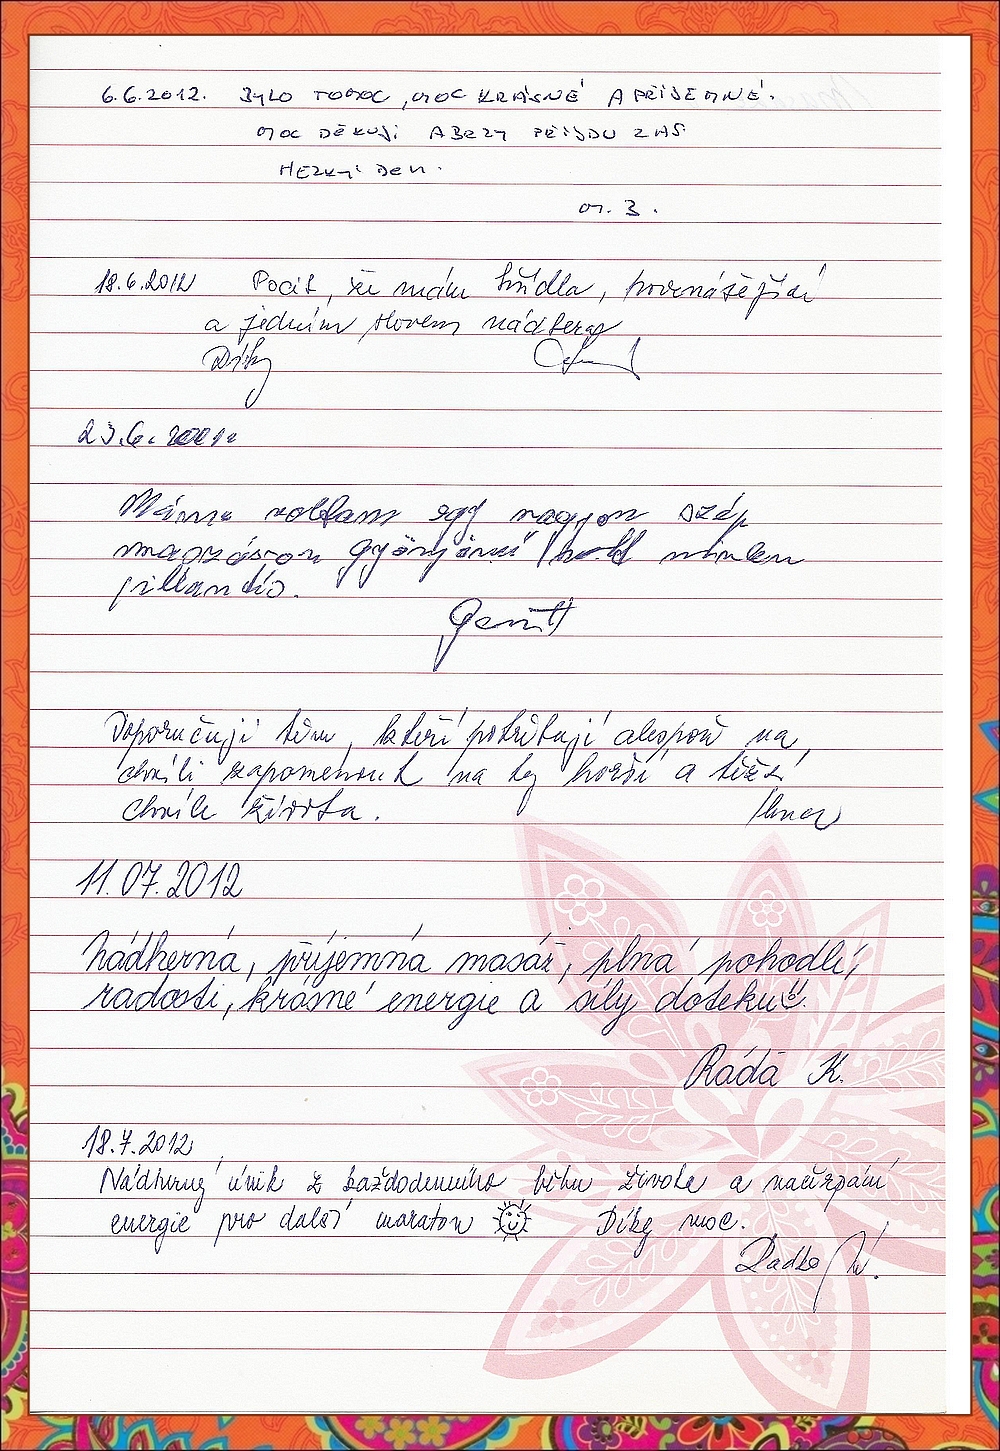 6.6.2012. BYLO TO MOC, MOC KRÁSNÉ A PŘÍJEMNÉ.
MOC DĚKUJI A BRZY PŘIJDU ZAS
HEZKÝ DEN.
M. B.
18.6.2012 Pocit, že mám křídla, povznášející
a jedním slovem nádhera
Díky
23.6.
voltam egy nagyon szép
gyönyörű volt minden
pillantás.
Doporučuji těm, kteří potřebují alespoň na
chvíli zapomenout na ty horší a těžší
chvíle života.
11.07.2012
Nádherná, příjemná masáž, plná pohodlí,
radosti, krásné energie a síly doteku!!
Ráďa K.
18.7.2012
Nádherný únik z každodenního běhu života a načerpání
energie pro další maraton Díky moc.
Radka